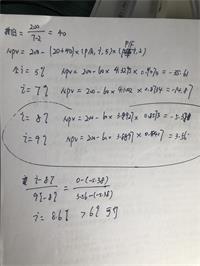 折旧 = 200/(7-2) = 40
npv = 200 - (20+40) × (P/A, i, 5) × (P/F, i, 2)
i = 5% npv = 200 - 60 × 4.3295 × 0.9070 = -35.61
i = 7% npv = 200 - 60 × 4.1002 × 0.8734 = -14.87
i = 8% npv = 200 - 60 × 3.9927 × 0.8573 = -5.38
i = 9% npv = 200 - 60 × 3.8897 × 0.8417 = 3.56
(i-8%)/(9%-8%) = (0-(-5.38))/(3.56-(-5.38))
i = 8.6%